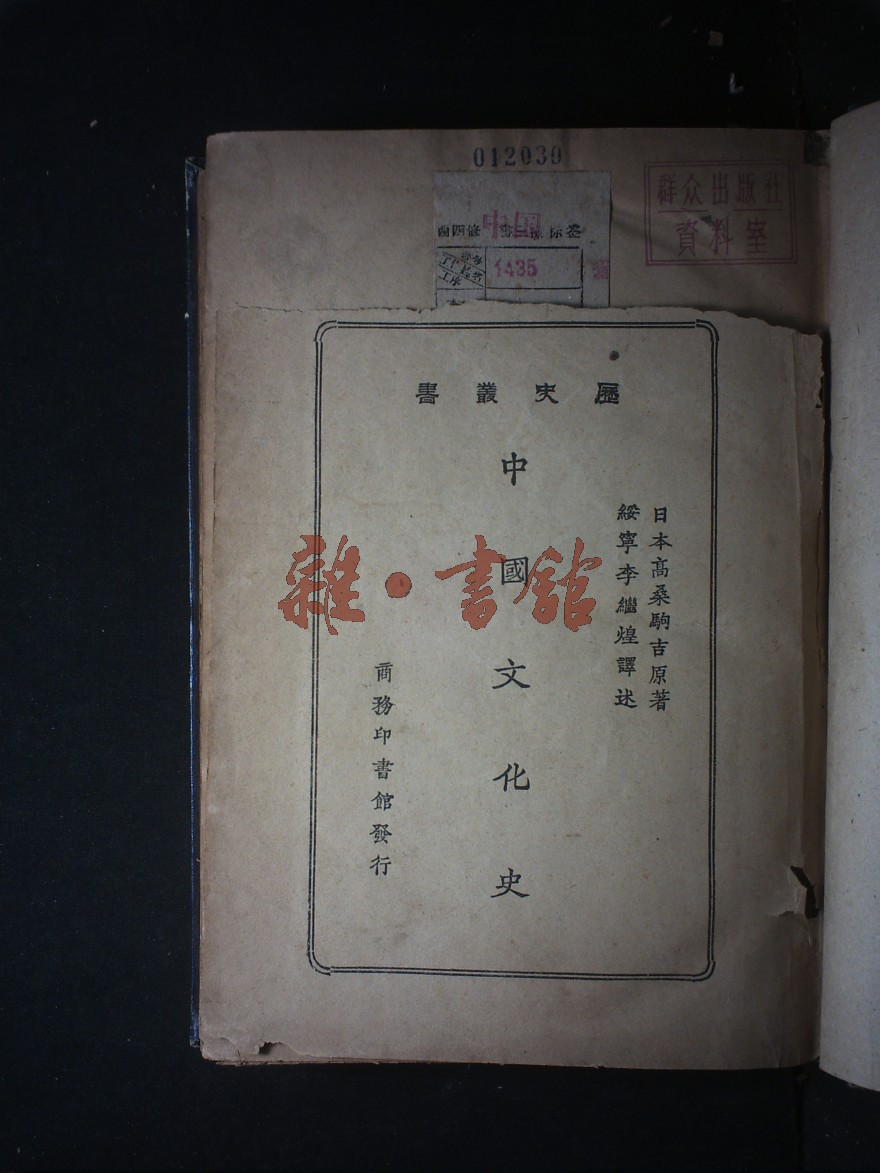 012030
群众出版社
資料室
中国
1435
歷史叢書
日本高桑駒吉原著
綏寧李繼煌譯述
中國文化史
商務印書館發行
雜·書館